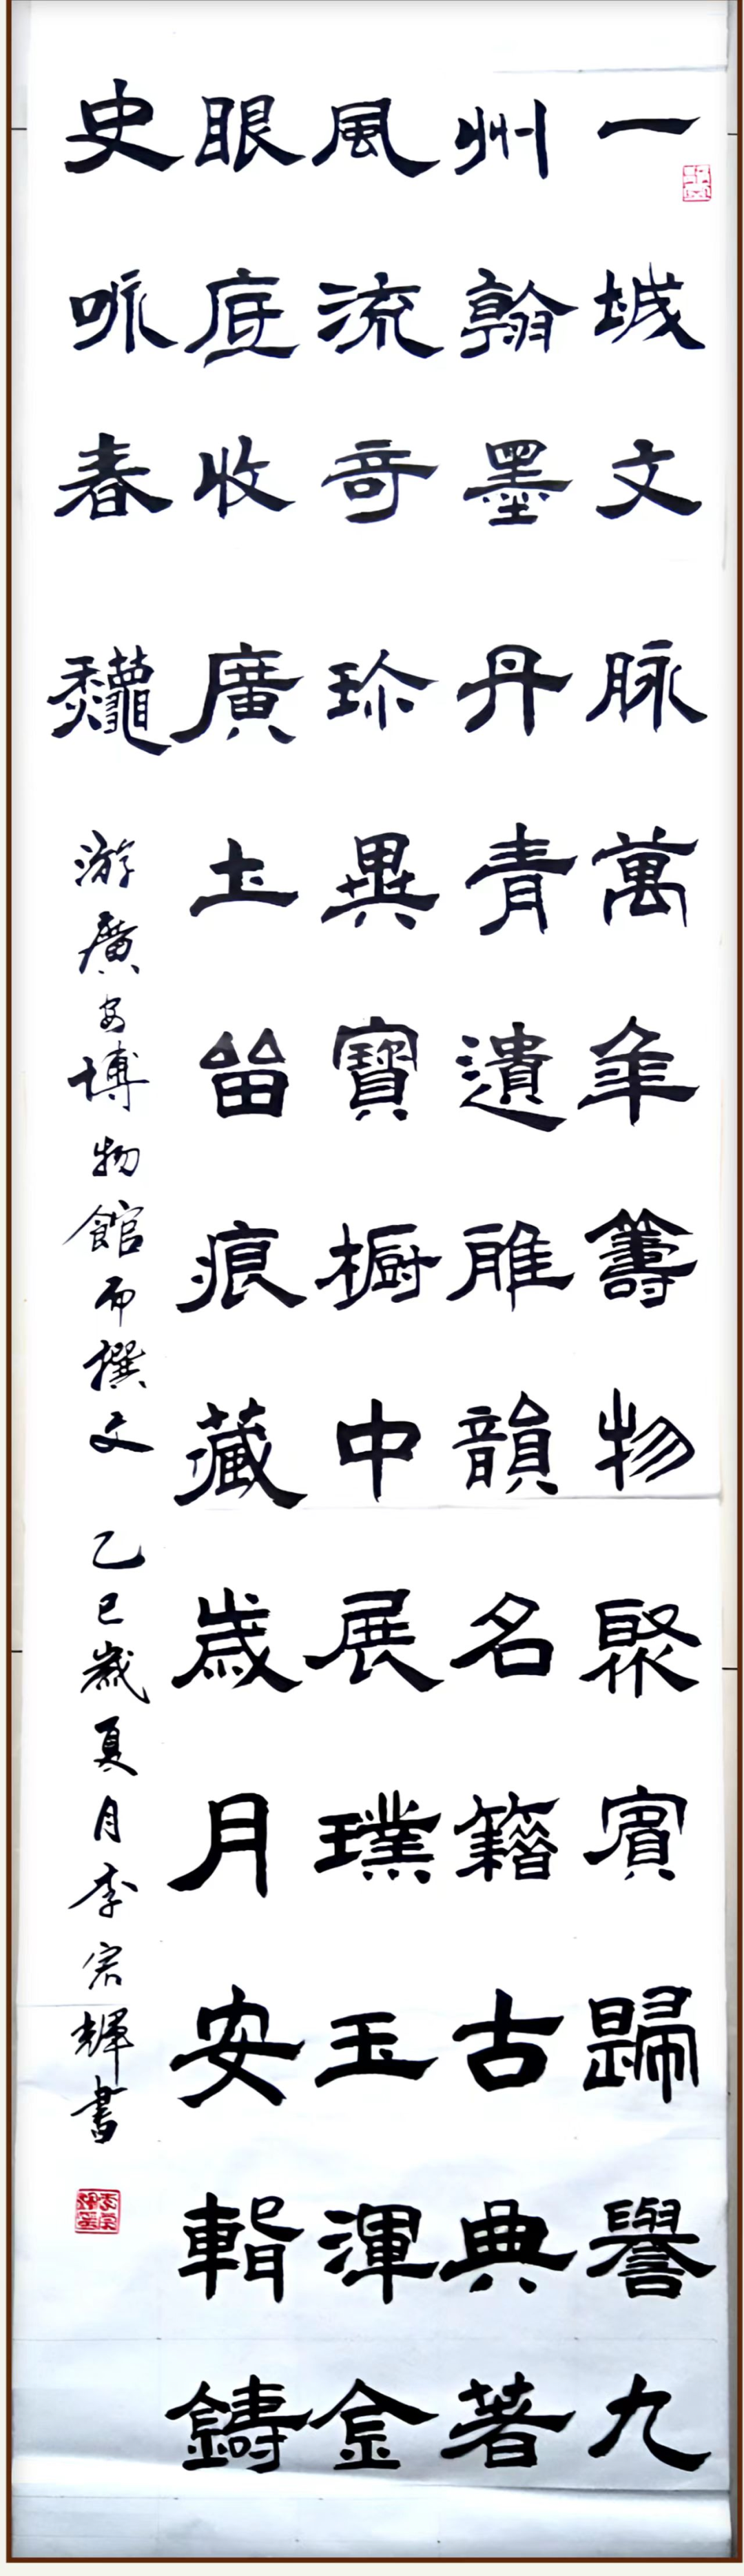 一城文脉萬年籌物聚賓歸譽九
州翰墨丹青遺雅韻名籍古典著
風流奇珍異寶橱中展璞玉渾金
眼底收廣土留痕藏歲月安輯鑄
史咏春龝
游廣安博物館而撰文 乙巳歲夏月李宏輝書